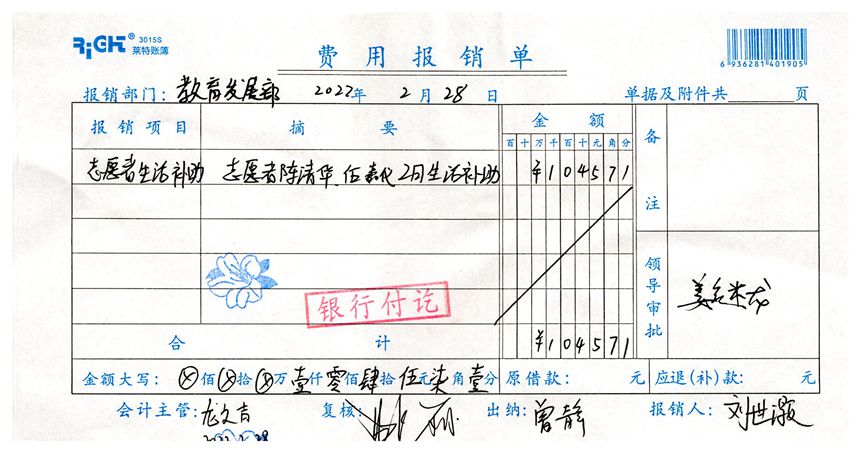 RiGHT® 3015S
莱特账簿
费用报销单
6 936281 401905
报销部门：教育发展部 2022年 2月 28日 单据及附件共 页
报销项目 摘要 金额 备注
百十万千百十元角分
志愿者生活补助 志愿者陈清华、伍嘉代2月生活补助 ¥104571
银行付讫
领导审批
合计 ¥104571
金额大写：ⓧ佰ⓧ拾ⓧ万壹仟零佰肆拾伍元柒角壹分 原借款： 元 应退(补)款： 元
会计主管：龙文吉 复核： 出纳：曾静 报销人：刘世灏